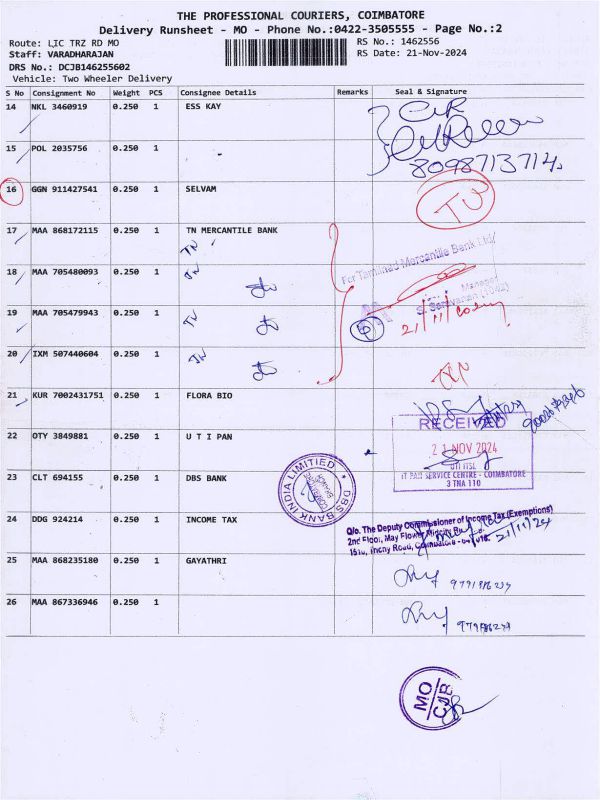 THE PROFESSIONAL COURIERS, COIMBATORE
Delivery Runsheet - MO - Phone No.:0422-3505555 - Page No.:2
Route: LIC TRZ RD MO
RS No.: 1462556
Staff: VARADHARAJAN
RS Date: 21-Nov-2024
DRS No.: DCJB146255602
Vehicle: Two Wheeler Delivery
S No Consignment No Weight PCS Consignee Details Remarks Seal & Signature
14 NKL 3460919 0.250 1 ESS KAY
15 POL 2035756 0.250 1
8098713714
16 GGN 911427541 0.250 1 SELVAM
17 MAA 868172115 0.250 1 TN MERCANTILE BANK
TN
For Tamilnad Mercantile Bank Ltd
18 MAA 705480093 0.250 1
TN
Manager
S. Saravanan (1042)
19 MAA 705479943 0.250 1
TN
21/11/
20 IXM 507440604 0.250 1
TN
21 KUR 7002431751 0.250 1 FLORA BIO
RECEIVED
22 OTY 3849881 0.250 1 U T I PAN
21 NOV 2024
UTI ITSL
IT PAN SERVICE CENTRE - COIMBATORE
3 TNA 110
23 CLT 694155 0.250 1 DBS BANK
DBS BANK INDIA LIMITED
COIMBATORE
BRANCH
24 DDG 924214 0.250 1 INCOME TAX
O/o. The Deputy Commissioner of Income Tax (Exemptions)
2nd Floor, May Flower
Trichy Road, Coimbatore -
21/11/24
25 MAA 868235180 0.250 1 GAYATHRI
26 MAA 867336946 0.250 1
MO
CJB